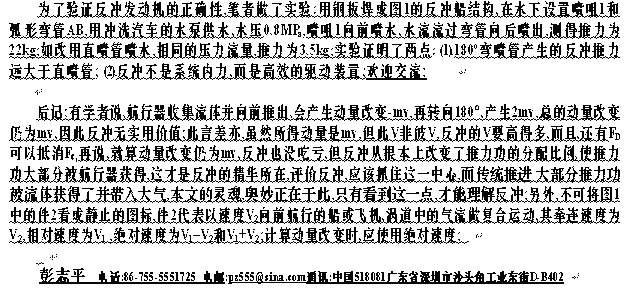 为了验证反冲发动机的正确性,笔者做了实验:用钢板焊成图1的反冲船结构,在水下设置喷咀1和
弧形弯管AB,用冲洗汽车的水泵供水,水压0.8MP,喷咀1向前喷水,水流流过弯管向后喷出,测得推力为
22kg;如改用直喷管喷水,相同的压力流量,推力为3.5kg;实验证明了两点: (1)180°弯喷管产生的反冲推力
远大于直喷管; (2)反冲不是系统内力,而是高效的驱动装置;欢迎交流;
后记:有学者说,航行器收集流体并向前推出,会产生动量改变-mv,再转向180°,产生2mv,总的动量改变
仍为mv,因此反冲无实用价值;此言差亦,虽然所得动量是mv,但此V非彼V,反冲的V要高得多,而且,还有F
可以抵消F,再说,就算动量改变仍为mv,反冲也没吃亏,但反冲从根本上改变了推力功的分配比例,使推力
功大部分被航行器获得,这才是反冲的精华所在,评价反冲,应该抓住这一中心,而传统推进,大部分推力功
被流体获得了并带入大气,本文的灵魂,奥妙正在于此,只有看到这一点,才能理解反冲;另外,不可将图1
中的件2看或静止的图标,件2代表以速度V2向前航行的船或飞机,涡道中的气流做复合运动,其牵连速度为
V2,相对速度为V1,绝对速度为V1-V2和V1+V2;计算动量改变时,应使用绝对速度;
彭志平 电话:86-755-5551725 电邮:pz555@sina.com通讯:中国518081广东省深圳市沙头角工业东街D-B402